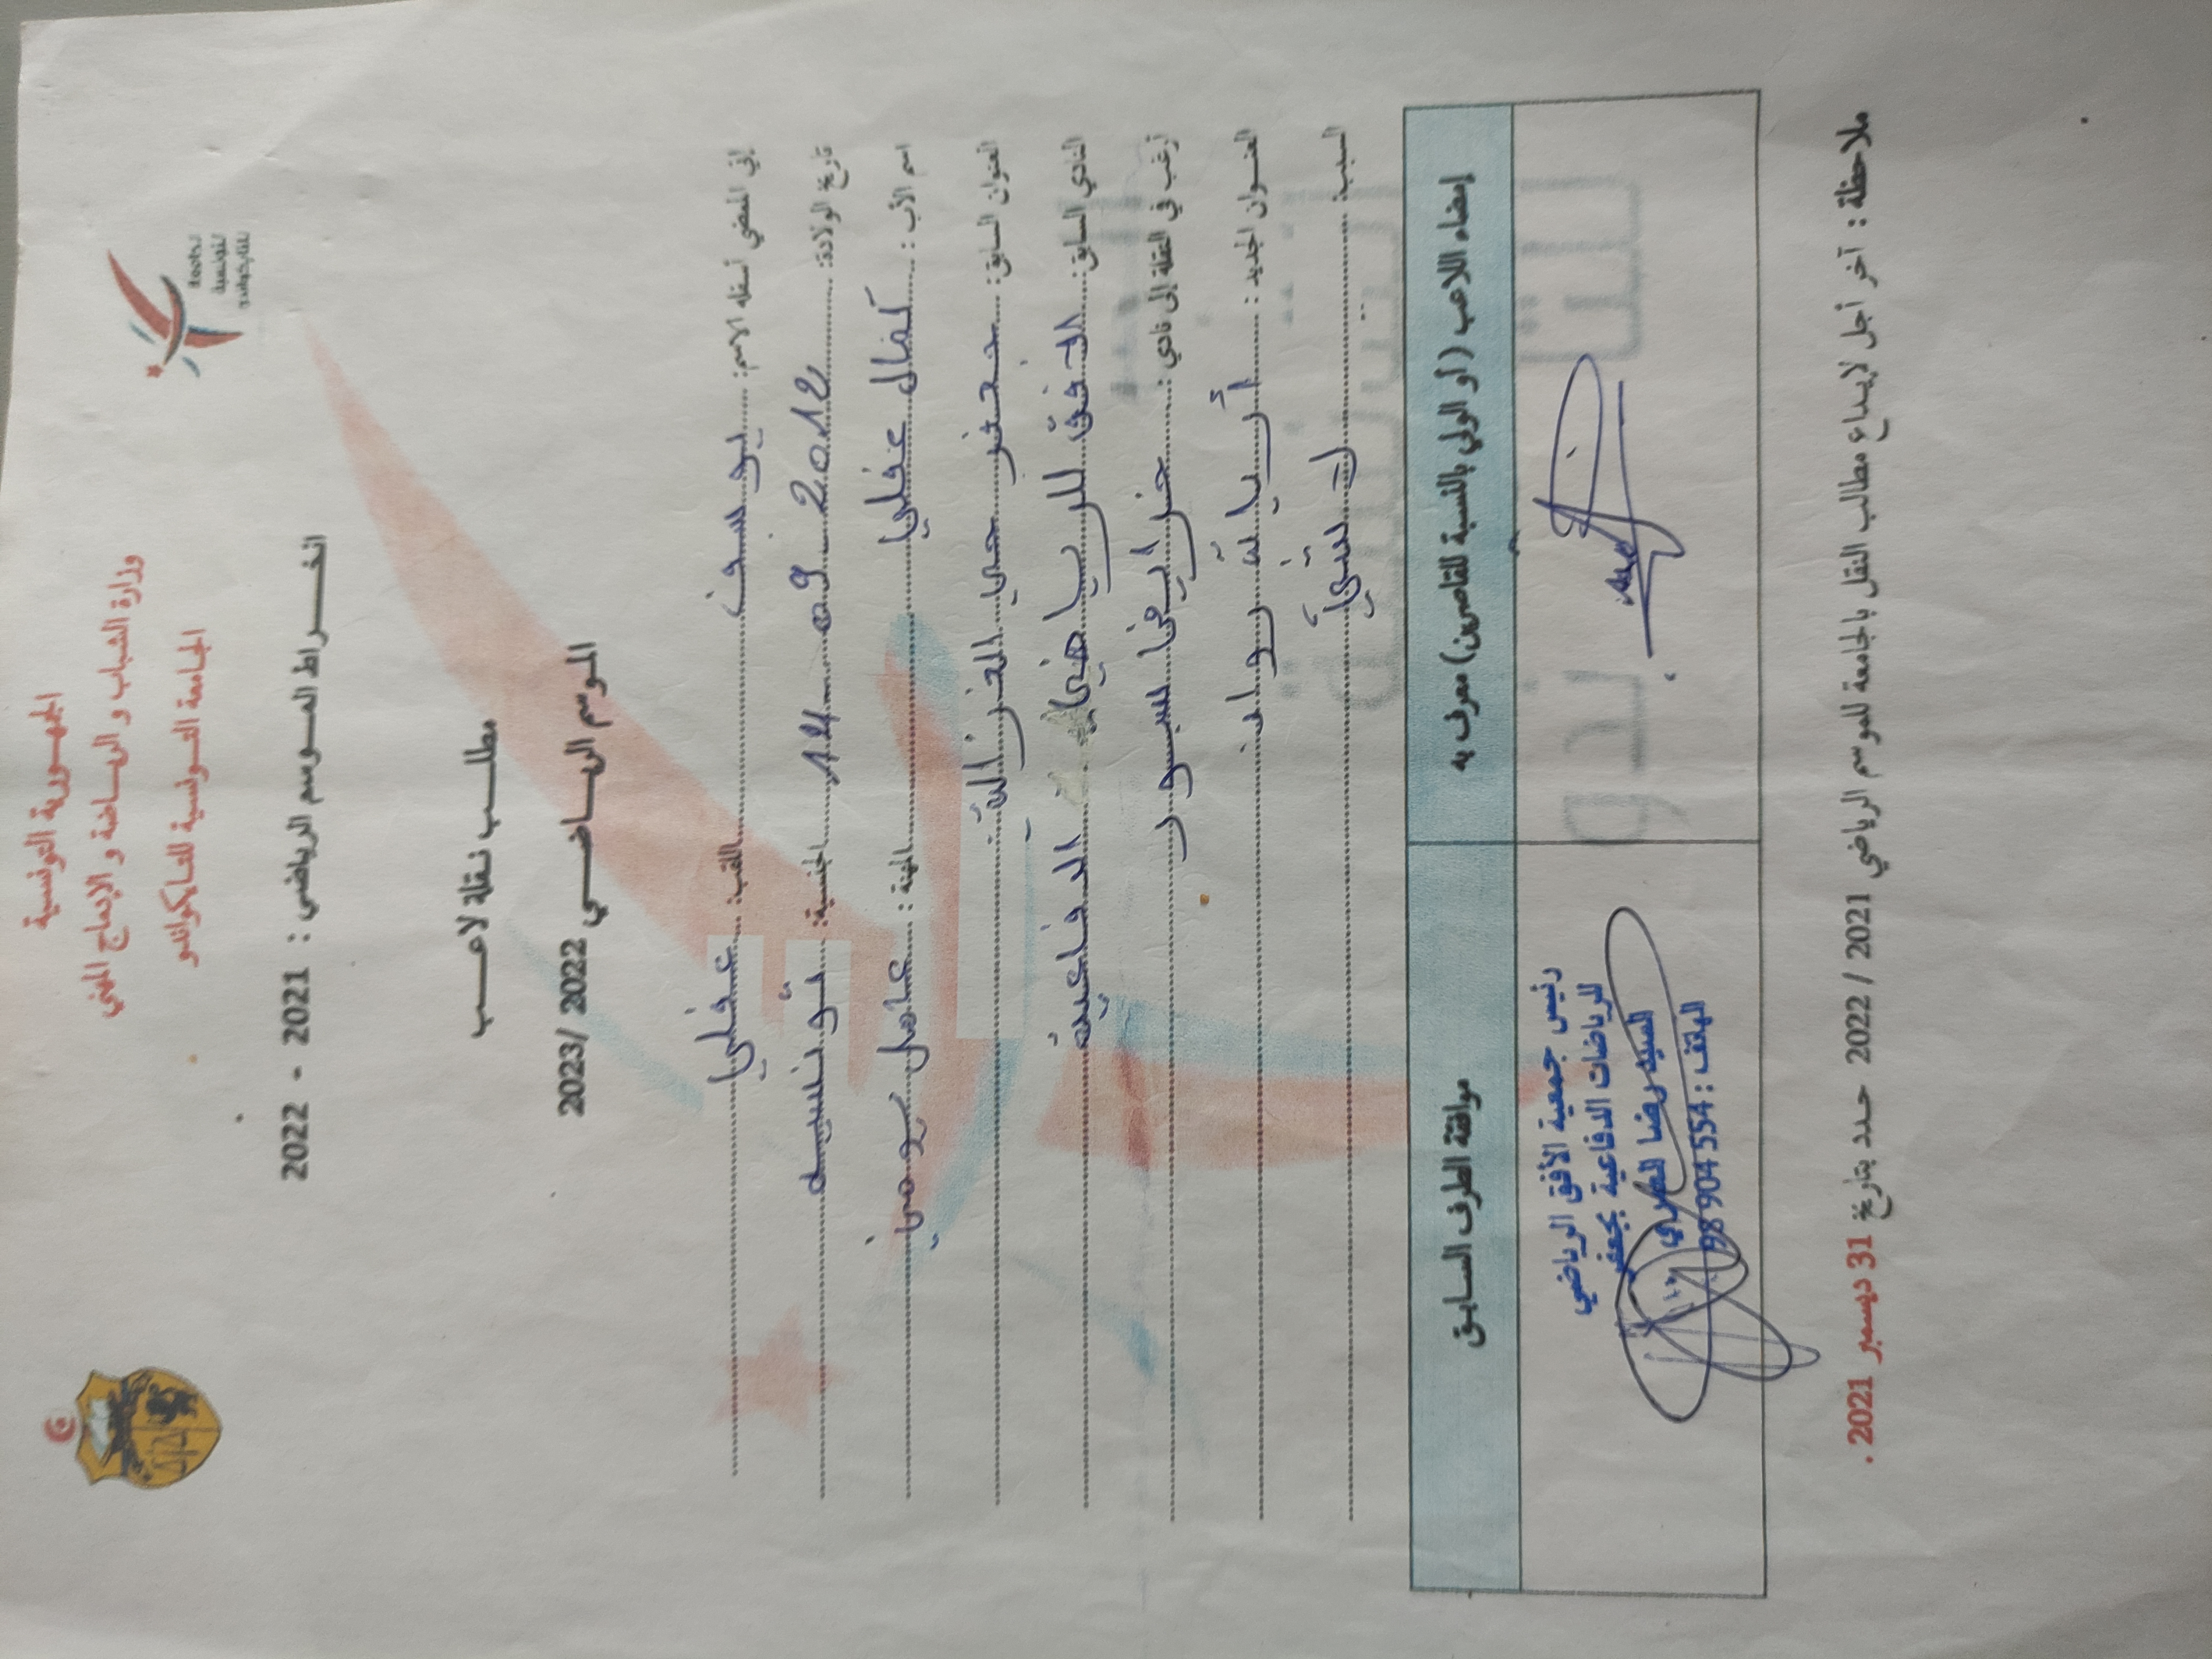 الجمهورية التونسية
وزارة الشباب و الرياضة و الإدماج المهني
الجامعة التونسية للتايكواندو
الجامعة
التونسية
للتايكواندو
انخراط الموسم الرياضي : 2021 - 2022
مطلب نقلة لاعب
الموسم الرياضي 2022 /2023
إني الممضي أسفله الاسم: يوسف اللقب: عفلي
تاريخ الولادة: 14 09 2012 الجنسية: تونسية
اسم الأب : كمال عفلي المهنة : عامل يومي
العنوان السابق: جعفر حي الغزالة
النادي السابق: الافق للرياضي الدفاعية
أرغب في النقلة إلى نادي: سبور
العنوان الجديد : أريانة رواد
السبب:
إمضاء اللاعب (أو الولي بالنسبة للقاصرين) معرف به
موافقة الطرف السابق
رئيس جمعية الأفق الرياضي
للرياضات الدفاعية بجعفر
السيد رضا
الهاتف : 98904554
ملاحظة : آخر أجل لإيداع مطالب النقل بالجامعة للموسم الرياضي 2021 / 2022 حدد بتاريخ 31 ديسمبر 2021 .